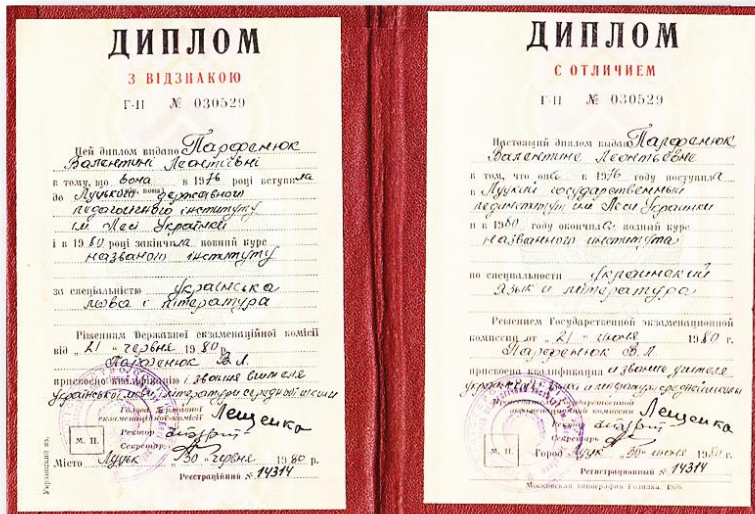 ДИПЛОМ
З ВІДЗНАКОЮ
Г-II № 030529
Цей диплом видано Парфенюк
Валентині Леонтіївні
в тому, що вона в 1976 році вступила
до Луцького державного
педагогічного інституту
ім Лесі Українки
і в 1980 році закінчила повний курс
названого інституту
за спеціальністю українська
мова і література
Рішенням Державної екзаменаційної комісії
від „21" червня 1980 р.
Парфенюк В.Л.
присвоєно кваліфікацію і звання вчителя
української мови і літератури середньої школи
Голова Державної
екзаменаційної комісії Лещенко
Ректор
Секретар
М. П.
Місто Луцьк „30" червня 1980 р.
Реєстраційний № 14314
Український яз.
ДИПЛОМ
С ОТЛИЧИЕМ
Г-II № 030529
Настоящий диплом выдан Парфенюк
Валентине Леонтьевне
в том, что она в 1976 году поступила
в Луцкий государственный
пединститут им Леси Украинки
и в 1980 году окончила полный курс
названного института
по специальности украинский
язык и литература
Решением Государственной экзаменационной
комиссии от „21" июня 1980 г.
Парфенюк В.Л.
присвоена квалификация и звание учителя
украинского языка и литературы средней школы
Председатель Государственной
экзаменационной комиссии Лещенко
Ректор
Секретарь
М. П.
Город Луцк „30" июня 1980 г.
Регистрационный № 14314
Московская типография Гознака. 1976.